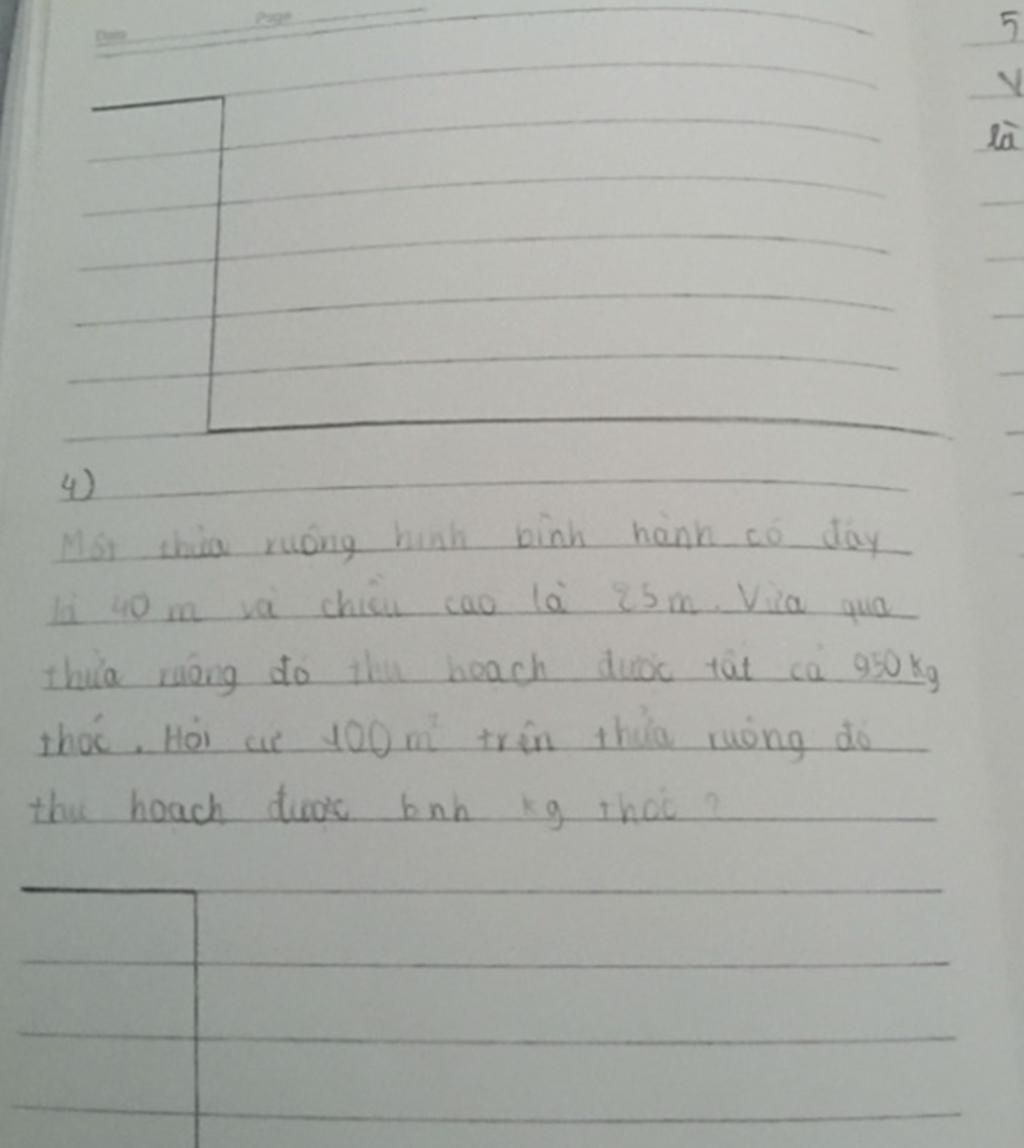 Date Page
5
V
là
4)
Một thửa ruộng hình bình hành có đáy
là 40 m và chiều cao là 25m. Vừa qua
thửa ruộng đó thu hoạch được tất cả 950 kg
thóc. Hỏi cứ 100 m² trên thửa ruộng đó
thu hoạch được bnh kg thóc ?